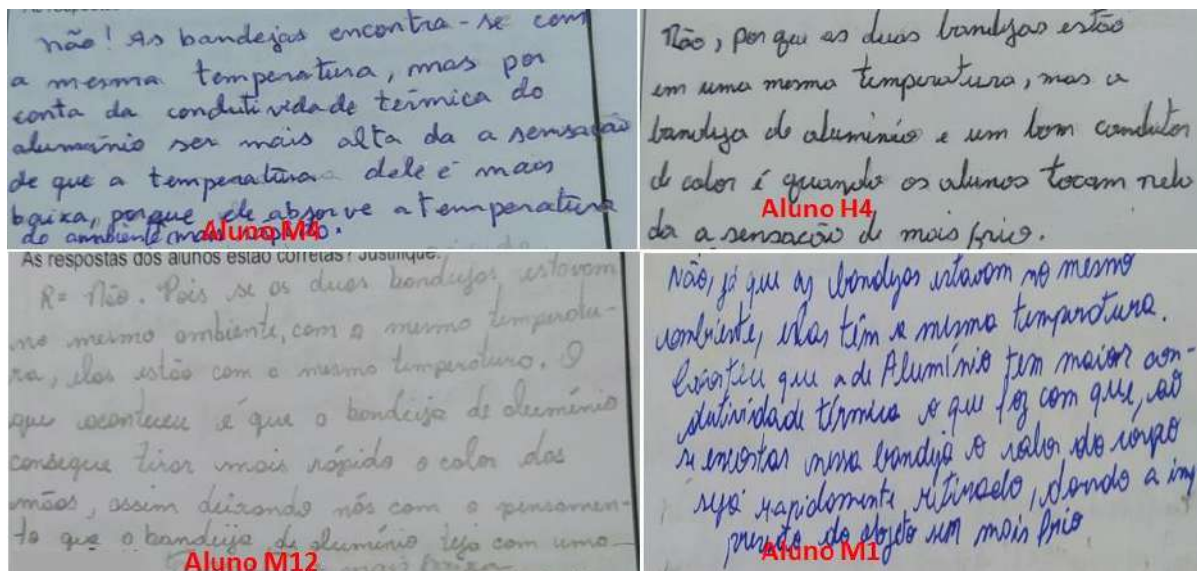 não! As bandejas encontra-se com
a mesma temperatura, mas por
conta da condutividade térmica do
alumínio ser mais alta da a sensação
de que a temperatura dele é mais
baixa, porque ele absorve a temperatura
do ambiente mais
Aluno M4
Não, porque as duas bandejas estão
em uma mesma temperatura, mas a
bandeja de aluminio e um bom condutor
de calor é quando os alunos tocam nela
da a sensação de mais frio.
Aluno H4
As respostas dos alunos estão corretas? Justifique.
R= Não. Pois se as duas bandejas estavam
no mesmo ambiente, com a mesma temperatu-
ra, elas estão com a mesma temperatura. O
que aconteceu é que a bandeija de alumínio
consegue tirar mais rápido o calor das
mãos, assim deixando nós com o pensamen-
to que a bandeija de alumínio teja com uma
Aluno M12
Não, já que as bandejas estavam no mesmo
ambiente, elas têm a mesma temperatura.
que a de Alumínio tem maior con-
dutividade térmica o que fez com que, ao
se encostar nessa bandeja o calor do corpo
seja rapidamente retirado, dando a im
pressão do objeto sem mais frio
Aluno M1